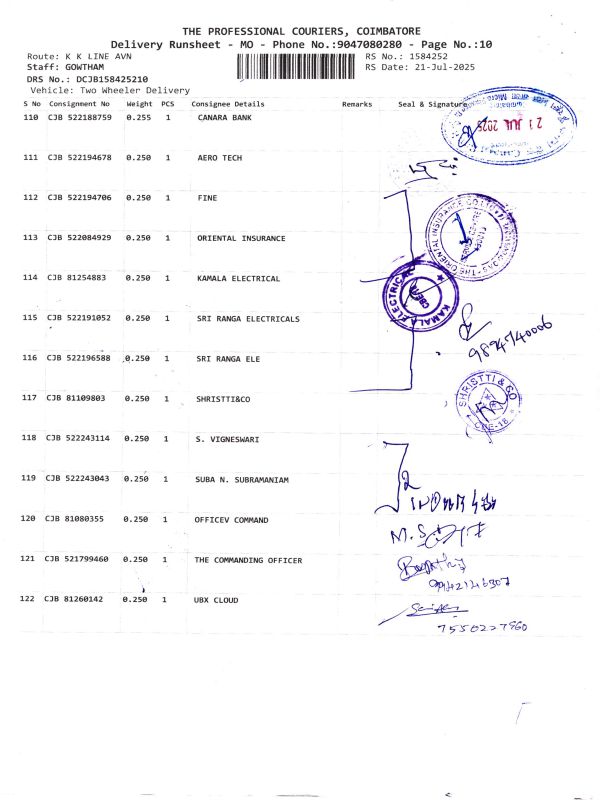 THE PROFESSIONAL COURIERS, COIMBATORE
Delivery Runsheet - MO - Phone No.:9047080280 - Page No.:10
Route: K K LINE AVN RS No.: 1584252
Staff: GOWTHAM RS Date: 21-Jul-2025
DRS No.: DCJB158425210
Vehicle: Two Wheeler Delivery
S No Consignment No Weight PCS Consignee Details Remarks Seal & Signature
110 CJB 522188759 0.255 1 CANARA BANK
21 JUL 2025
111 CJB 522194678 0.250 1 AERO TECH
112 CJB 522194706 0.250 1 FINE
113 CJB 522084929 0.250 1 ORIENTAL INSURANCE
THE ORIENTAL INSURANCE CO
114 CJB 81254883 0.250 1 KAMALA ELECTRICAL
KAMALA ELECTRICAL
115 CJB 522191052 0.250 1 SRI RANGA ELECTRICALS
9894740006
116 CJB 522196588 0.250 1 SRI RANGA ELE
117 CJB 81109803 0.250 1 SHRISTTI&CO
SHRISTTI & CO
CBE-18
118 CJB 522243114 0.250 1 S. VIGNESWARI
119 CJB 522243043 0.250 1 SUBA N. SUBRAMANIAM
120 CJB 81080355 0.250 1 OFFICEV COMMAND
121 CJB 521799460 0.250 1 THE COMMANDING OFFICER
9942146307
122 CJB 81260142 0.250 1 UBX CLOUD
7550227960